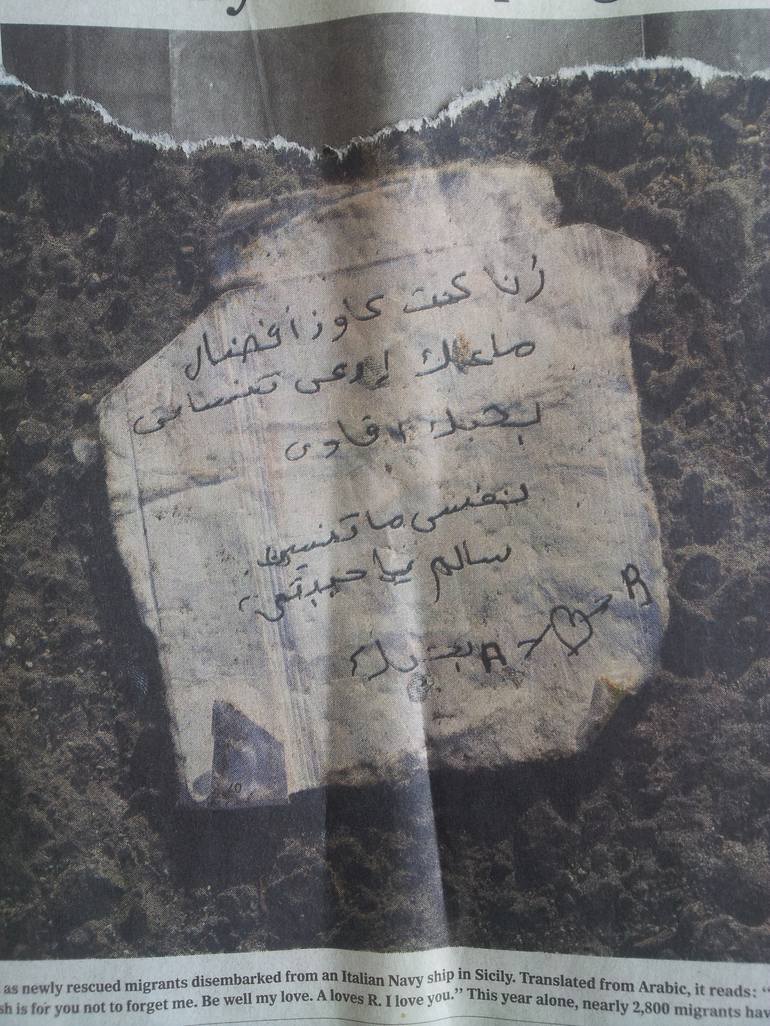 أنا كنت عاوز أفضال
معاك إوعى تنساني
بحبك اقاوى
نفسي ما تنسين
سالم يا حبيبتي
A ♡ R بحبك
10
as newly rescued migrants disembarked from an Italian Navy ship in Sicily. Translated from Arabic, it reads: “
sh is for you not to forget me. Be well my love. A loves R. I love you.” This year alone, nearly 2,800 migrants hav